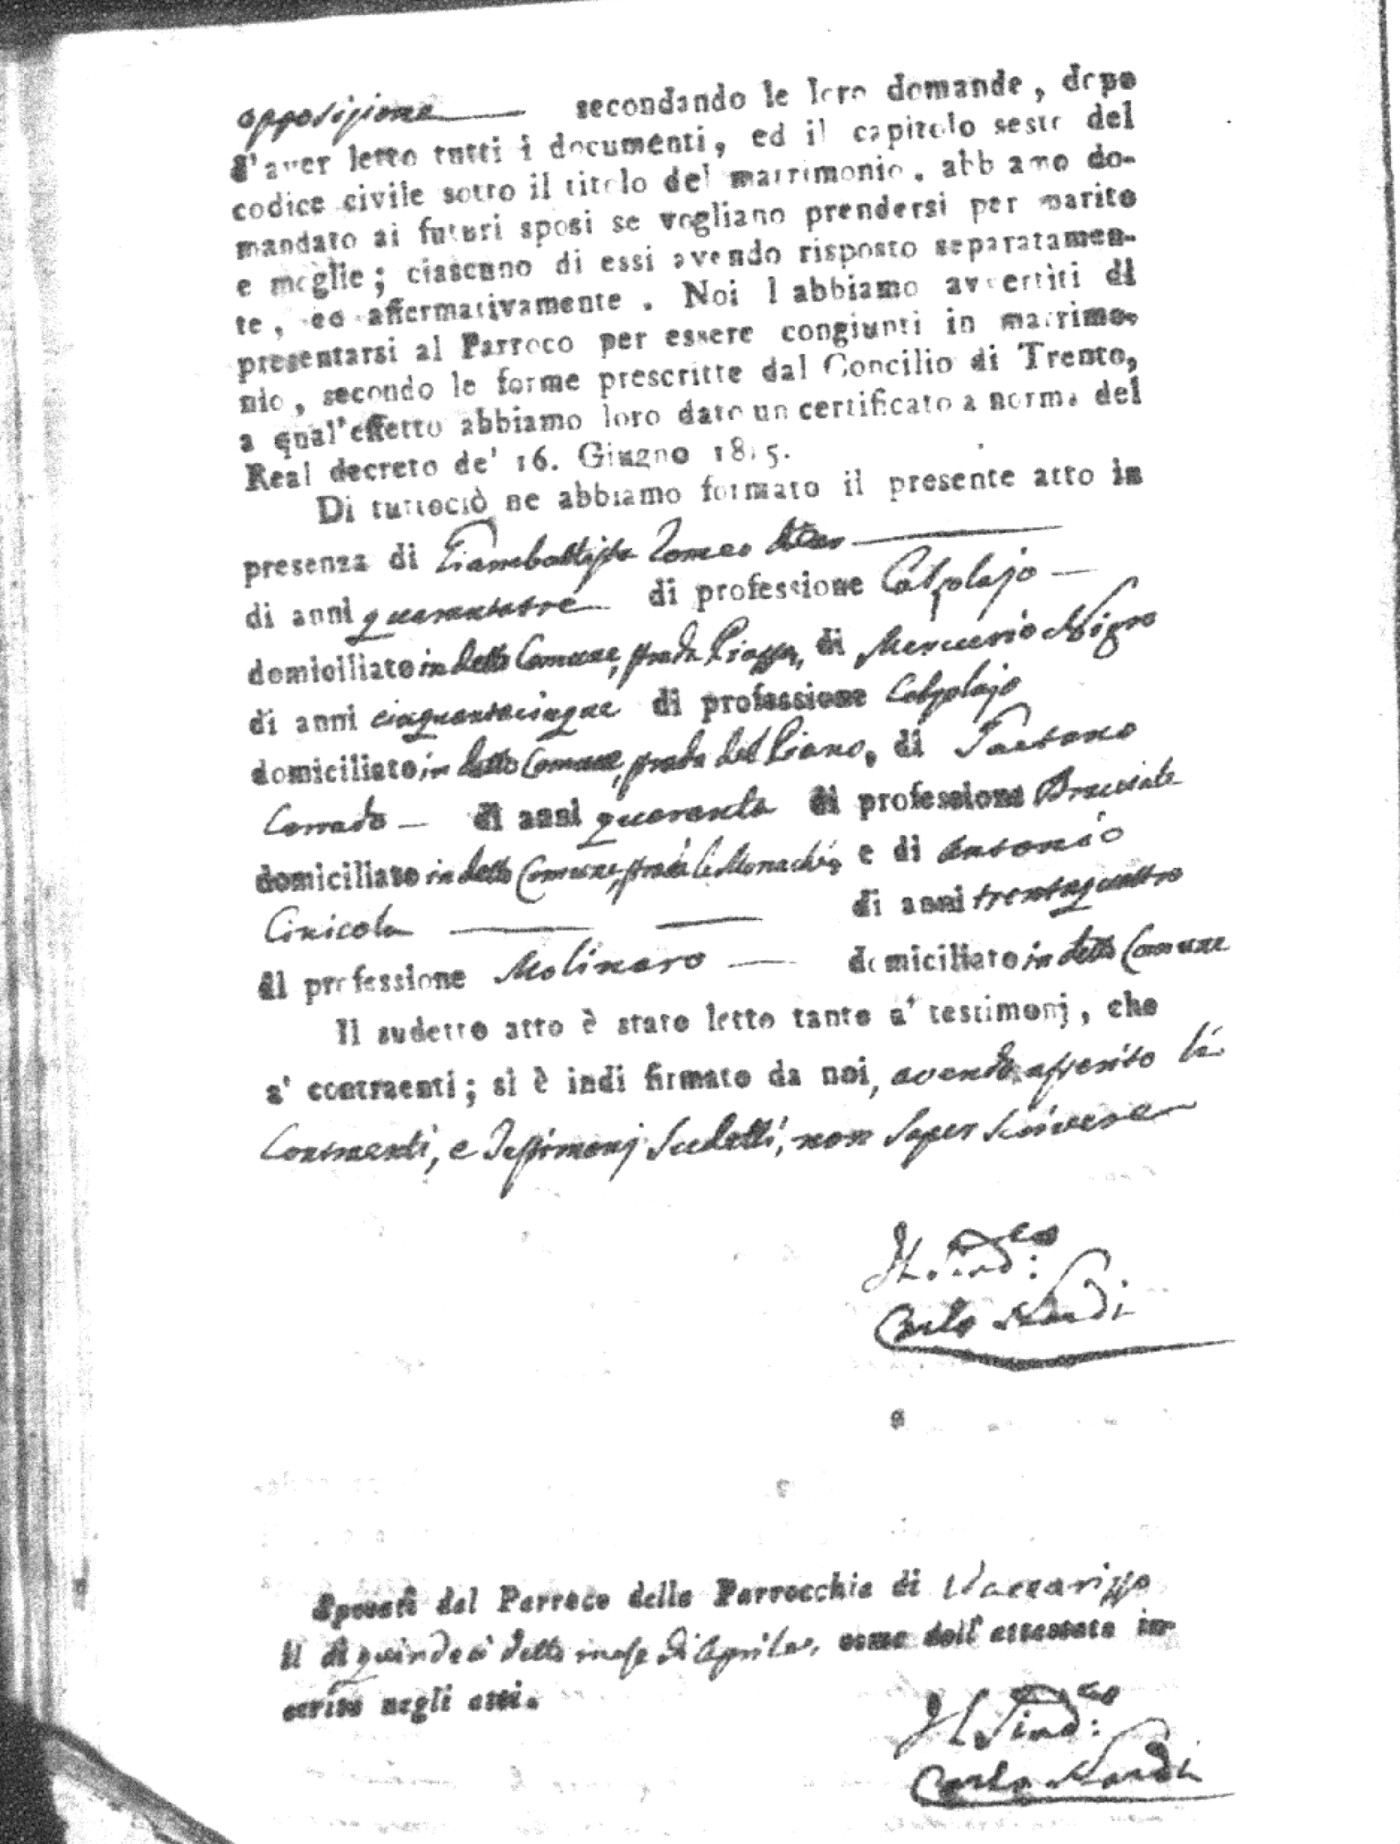 opposizione secondando le loro domande, dopo
d'aver letto tutti i documenti, ed il capitolo sesto del
codice civile sotto il titolo del matrimonio, abbiamo do-
mandato ai futuri sposi se vogliano prendersi per marito
e moglie; ciascuno di essi avendo risposto separatamen-
te, ed affermativamente. Noi l abbiamo avvertiti di
presentarsi al Parroco per essere congiunti in matrimo-
nio, secondo le forme prescritte dal Concilio di Trento,
a qual'effetto abbiamo loro dato un certificato a norma del
Real decreto de' 16. Giugno 1815.
Di tuttociò ne abbiamo formato il presente atto in
presenza di Giambattista Tomeo
di anni quarantatre di professione Calzolajo
domiciliato in detto Comune, strada Piazza, di Mercurio Nigro
di anni cinquantacinque di professione Calzolajo
domiciliato in detto Comune, strada del Piano, di Gaetano
Corrado di anni quaranta di professione Bracciale
domiciliato in detto Comune, strada le Monache, e di Antonio
Cinicola di anni trentaquattro
di professione Molinaro domiciliato in detto Comune
Il sudetto atto è stato letto tanto a' testimonj, che
a' contraenti; si è indi firmato da noi, avendo asserito li
Contraenti, e Testimonj sudetti, non saper scrivere
Il Sind:co
Carlo Nardi
Sposati dal Parroco della Parrocchia di Vaccarizzo
il dì quindeci detto mese di Aprile, come dall' attestato in-
scritto negli atti.
Il Sind:co
Carlo Nardi